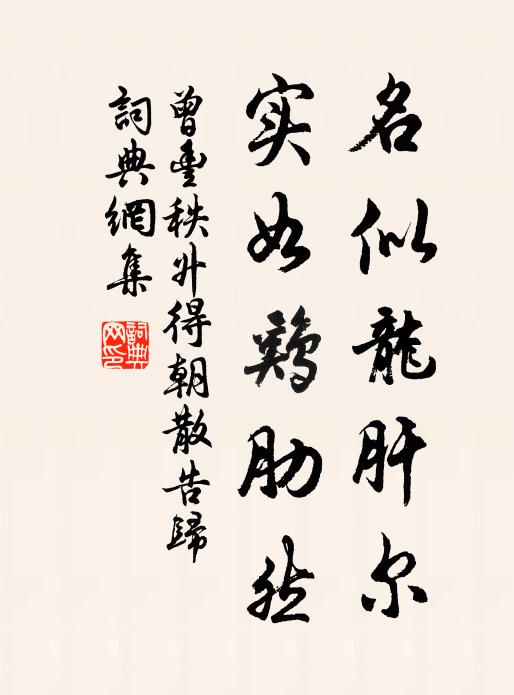 名似龍肝尔
实如鷄肋然
曾豐秩外得朝散告歸
詞典網集
詞典网印